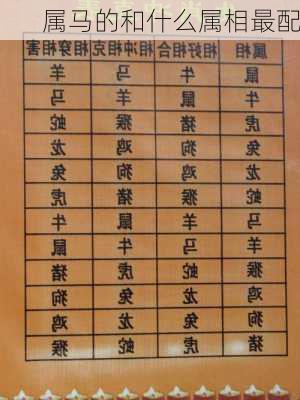 属马的和什么属相最配
属相 相好相合 相冲相克 相穿相害
鼠 牛 马 羊
牛 鼠 羊 马
虎 猪 猴 蛇
兔 狗 鸡 龙
龙 鸡 狗 兔
蛇 猴 猪 虎
马 羊 鼠 牛
羊 马 牛 鼠
猴 蛇 虎 猪
鸡 龙 兔 狗
狗 兔 龙 鸡
猪 虎 蛇 猴